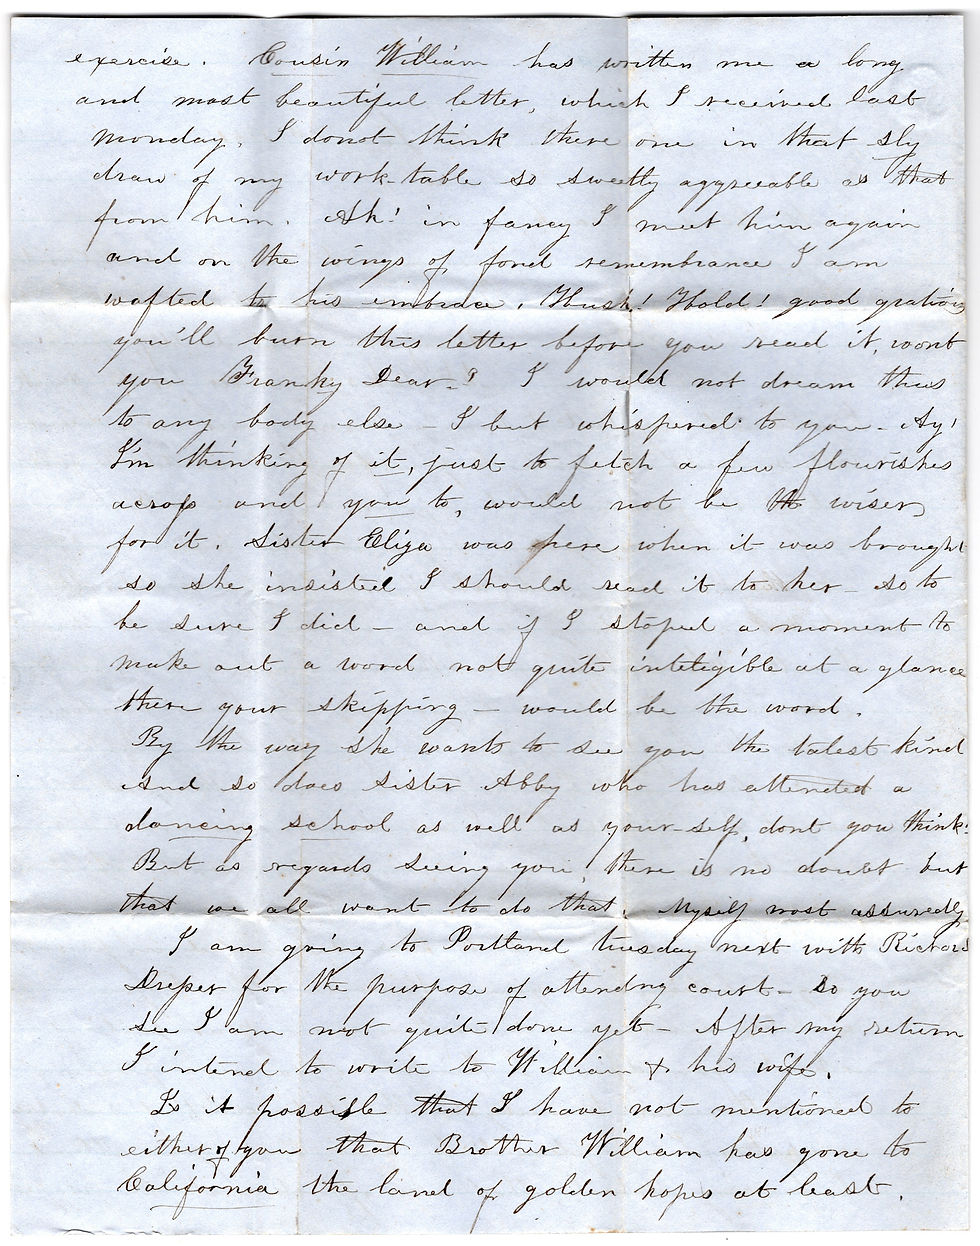 exercise. Cousin William has written me a long
and most beautiful letter, which I received last
monday. I donot think there one in that sly
draw of my work-table so sweetly aggreeable as that
from him. Ah! in fancy I meet him again
and on the wings of fond remembrance I am
wafted to his embrace. Hush! Hold! good gratious
you'll burn this letter before you read it, wont
you Franky Dear-? I would not dream thus
to any body else - I but whispered to you - Ay!
I'm thinking of it, just to fetch a few flourishes
across and you to, would not be the wiser
for it. Sister Eliza was here when it was brought
so she insisted I should read it to her - so to
be sure I did - and if I stoped a moment to
make out a word not quite inteligible at a glance
there your skipping - would be the word.
By the way she wants to see you the talest kind
and so does sister Abby who has attended a
dancing school as well as your-self, dont you think?
But as regards seeing you, there is no doubt but
that we all want to do that. Myself most assuredly.
I am going to Portland tuesday next with Richard
Dreser for the purpose of attending court - So you
see I am not quite done yet - After my return
I intend to write to William & his wife.
Is it possible that I have not mentioned to
either of you that Brother William has gone to
California the land of golden hopes at least.